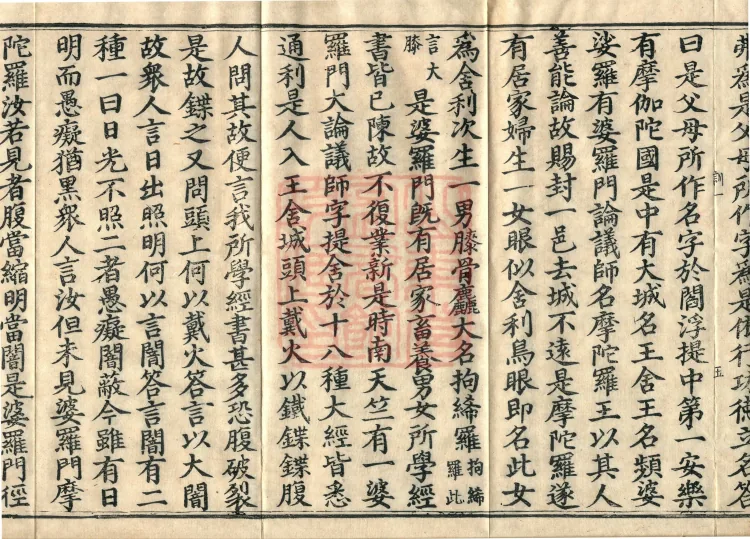 弗為是父母所作字為是依行功德立名答
訓一 五
曰是父母所作名字於閻浮提中第一安樂
有摩伽陀國是中有大城名王舍王名頻婆
娑羅有婆羅門論議師名摩陀羅王以其人
善能論故賜封一邑去城不遠是摩陀羅遂
有居家婦生一女眼似舍利鳥眼即名此女
為舍利次生一男膝骨麤大名拘絺羅拘絺羅此
言大膝是婆羅門既有居家畜養男女所學經
書皆已陳故不復業新是時南天竺有一婆
羅門大論議師字提舍於十八種大經皆悉
通利是人入王舍城頭上戴火以鐵鍱鍱腹
人問其故便言我所學經書甚多恐腹破裂
是故鍱之又問頭上何以戴火答言以大闇
故眾人言日出照明何以言闇答言闇有二
種一曰日光不照二者愚癡闇蔽今雖有日
明而愚癡猶黑眾人言汝但未見婆羅門摩
陀羅汝若見者腹當縮明當闇是婆羅門徑